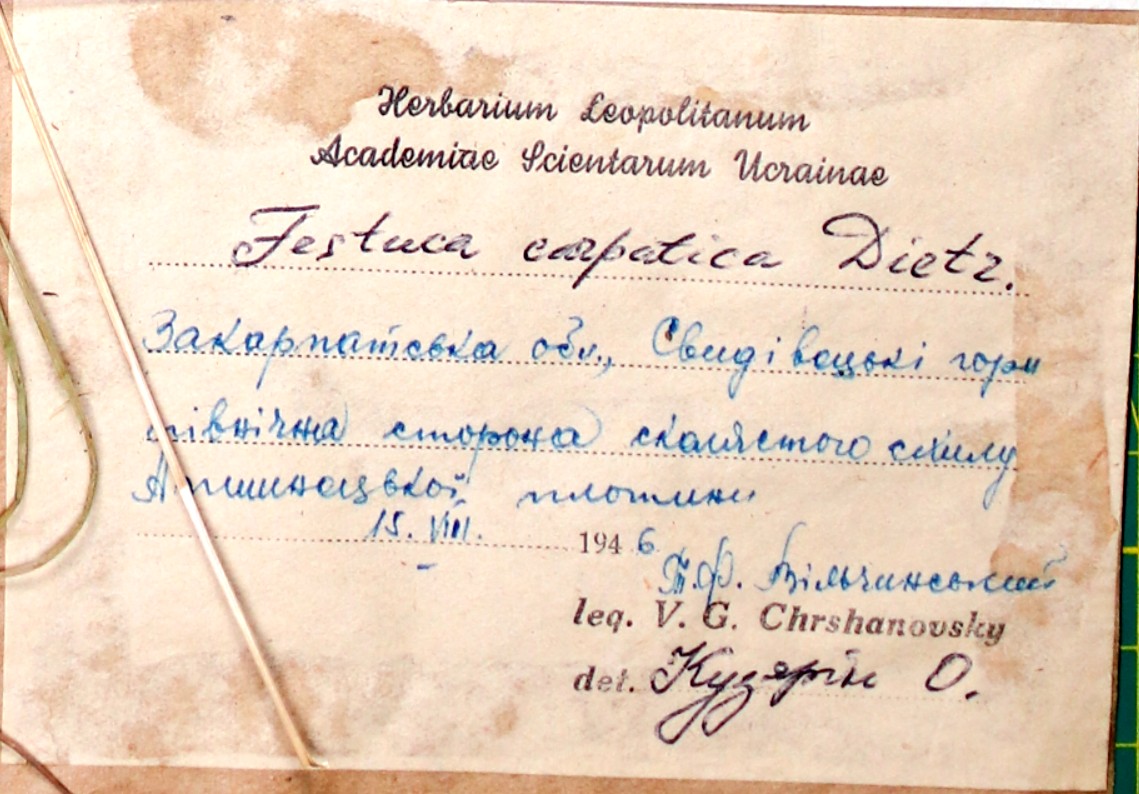 Herbarium Leopolitanum
Academiae Scientarum Ucrainae
Festuca carpatica Dietr.
Закарпатська обл., Свидівецькі гори
північна сторона скалястого схилу
плотини
15. VIII. 1946
Вільчинський
leg. V. G. Chrshanovsky
det. Кузярін О.